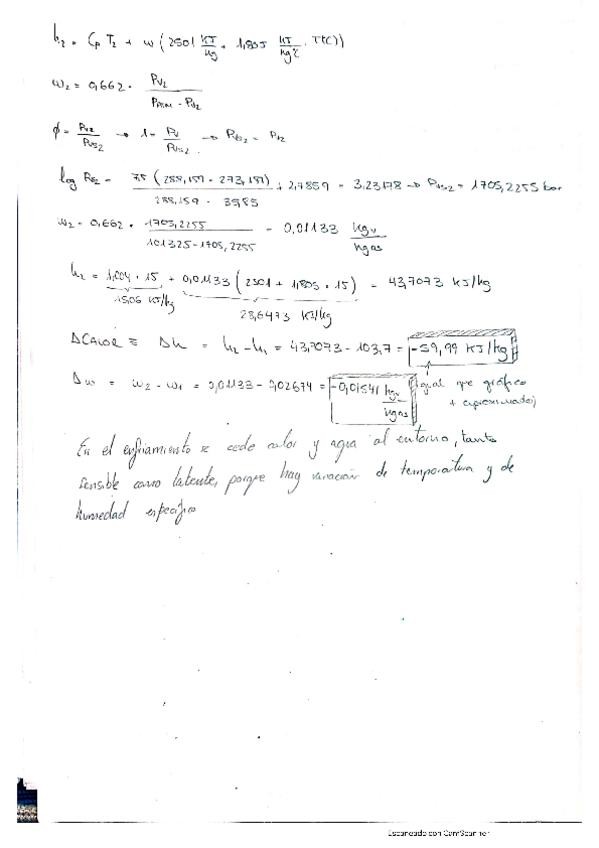 h₂ = Cp T₂ + w (2501 KJ/kg + 1,805 KJ/kgºC · T(ºC))
w₂ = 0,662 · Pv₂ / (PATM - Pv₂)
φ = Pv₂/Pvs₂ → 1 = Pv/Pvs₂ → Pvs₂ = Pv₂
log Pvs₂ = 7,5 (288,159 - 273,159) / (288,159 - 35,85) + 2,7859 = 3,23178 → Pvs₂ = 1705,2255 bar
w₂ = 0,662 · 1705,2255 / (101325 - 1705,2255) = 0,01133 kgv/kgas
h₂ = 1,004 · 15 + 0,01133 (2501 + 1,805 · 15) = 43,7073 KJ/kg
15,06 KJ/kg 28,6473 KJ/kg
ΔCALOR ≡ Δh = h₂ - h₁ = 43,7073 - 103,7 = -59,99 KJ/kg
Δw = w₂ - w₁ = 0,01133 - 0,02674 = -0,01541 kgv/kgas (igual que gráfico
+ aproximado)
En el enfriamiento se cede calor y agua al entorno, tanto
sensible como latente, porque hay variación de temperatura y de
humedad específica
Escaneado con CamScanner